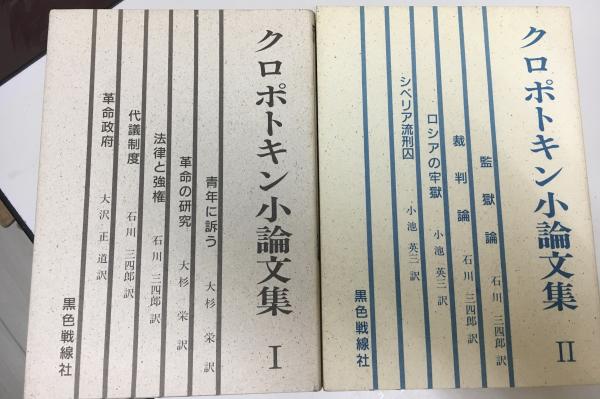 クロポトキン小論文集 I
青年に訴う 大杉 栄 訳
革命の研究 大杉 栄 訳
法律と強権 石川 三四郎 訳
代議制度 石川 三四郎 訳
革命政府 大沢 正道 訳
黒色戦線社
クロポトキン小論文集 II
監獄論 石川 三四郎 訳
裁判論 石川 三四郎 訳
ロシアの牢獄 小池 英三 訳
シベリア流刑囚 小池 英三 訳
黒色戦線社